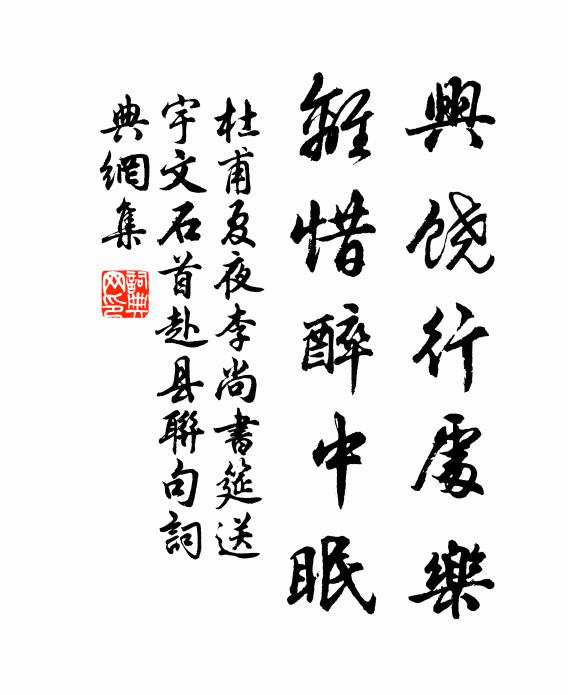 興饶行處樂
離惜醉中眠
杜甫夏夜李尚書筵送
宇文石首赴县聯句詞
典網集
詞典网印